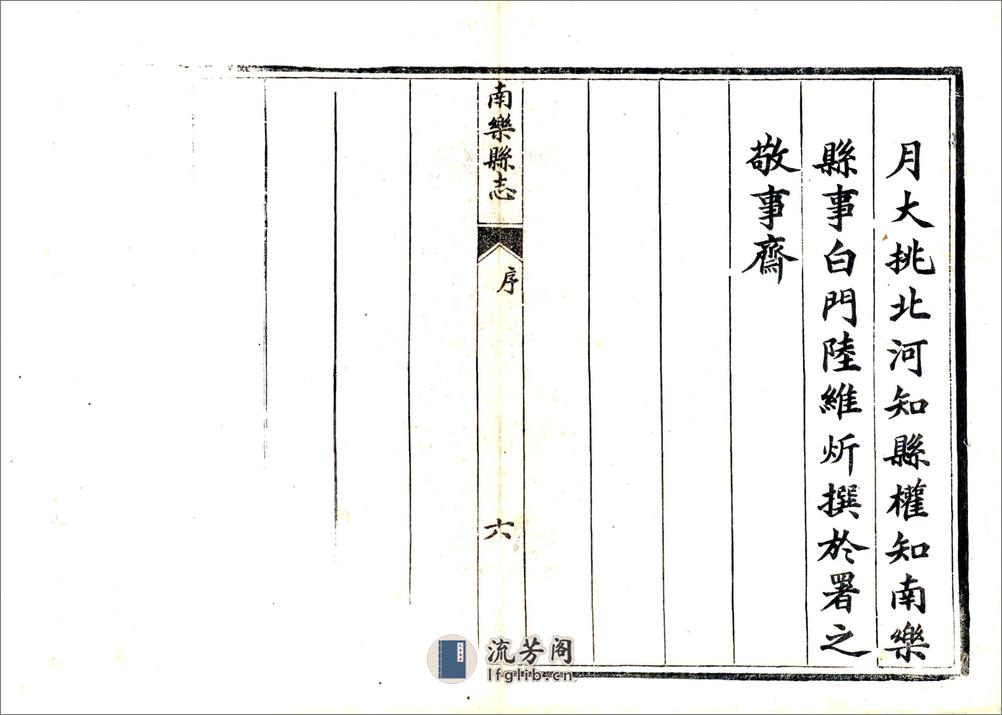 月大挑北河知縣權知南樂
縣事白門陸維炘撰於署之
敬事齋
南樂縣志
序
六
流芳阁
lfglib.cn